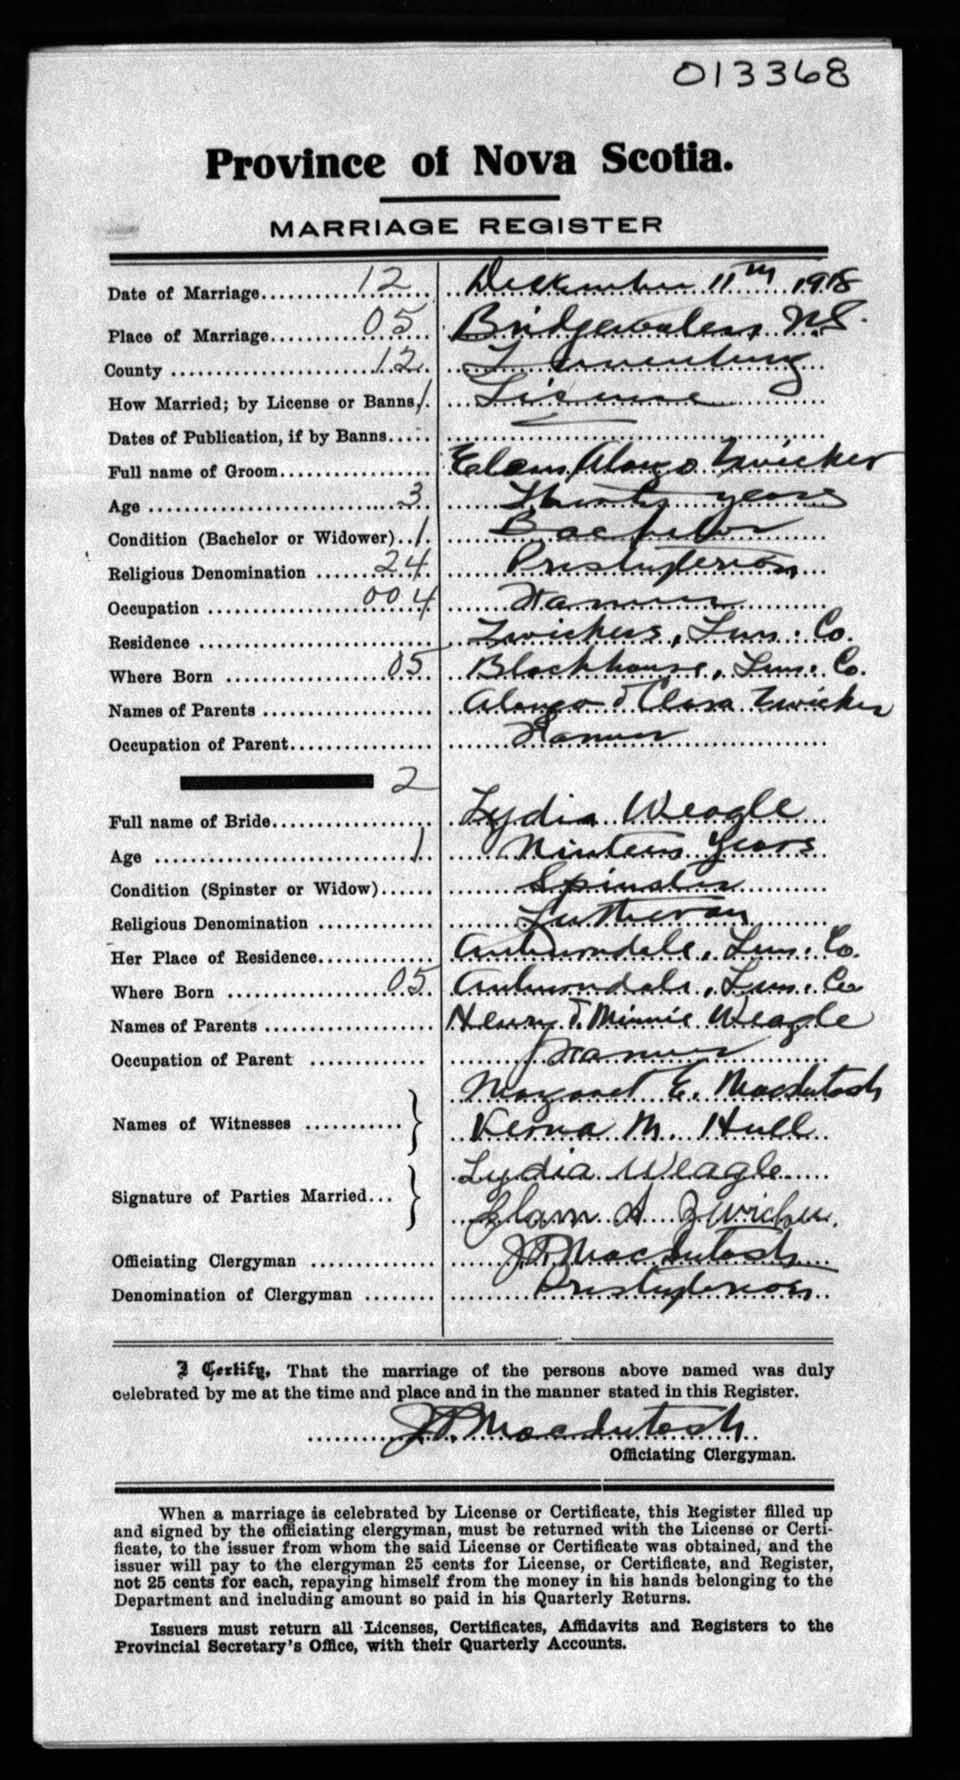 013368
Province of Nova Scotia.
MARRIAGE REGISTER
Date of Marriage 12 December 11th 1918
Place of Marriage 05 Bridgewater, N.S.
County 12 Lunenburg
How Married; by License or Banns 1 License
Dates of Publication, if by Banns
Full name of Groom Elam Alonzo Zwicker
Age 3 Thirty years
Condition (Bachelor or Widower) 1 Bachelor
Religious Denomination 24 Presbyterian
Occupation 004 Farmer
Residence Zwickers, Lun. Co.
Where Born 05 Blockhouse, Lun. Co.
Names of Parents Alonzo & Clara Zwicker
Occupation of Parent Farmer
2
Full name of Bride Lydia Weagle
Age 1 Ninteen Years
Condition (Spinster or Widow) Spinster
Religious Denomination Lutheran
Her Place of Residence Auburndale, Lun. Co.
Where Born 05 Auburndale, Lun. Co
Names of Parents Henry & Minnie Weagle
Occupation of Parent Farmer
Names of Witnesses } Margaret E. MacIntosh
M. Hull
Signature of Parties Married } Lydia Weagle
Elam A Zwicker.
Officiating Clergyman MacIntosh
Denomination of Clergyman Presbyterian
I Certify, That the marriage of the persons above named was duly
celebrated by me at the time and place and in the manner stated in this Register.
MacIntosh
Officiating Clergyman.
When a marriage is celebrated by License or Certificate, this Register filled up
and signed by the officiating clergyman, must be returned with the License or Certi-
ficate, to the issuer from whom the said License or Certificate was obtained, and the
issuer will pay to the clergyman 25 cents for License, or Certificate, and Register,
not 25 cents for each, repaying himself from the money in his hands belonging to the
Department and including amount so paid in his Quarterly Returns.
Issuers must return all Licenses, Certificates, Affidavits and Registers to the
Provincial Secretary's Office, with their Quarterly Accounts.